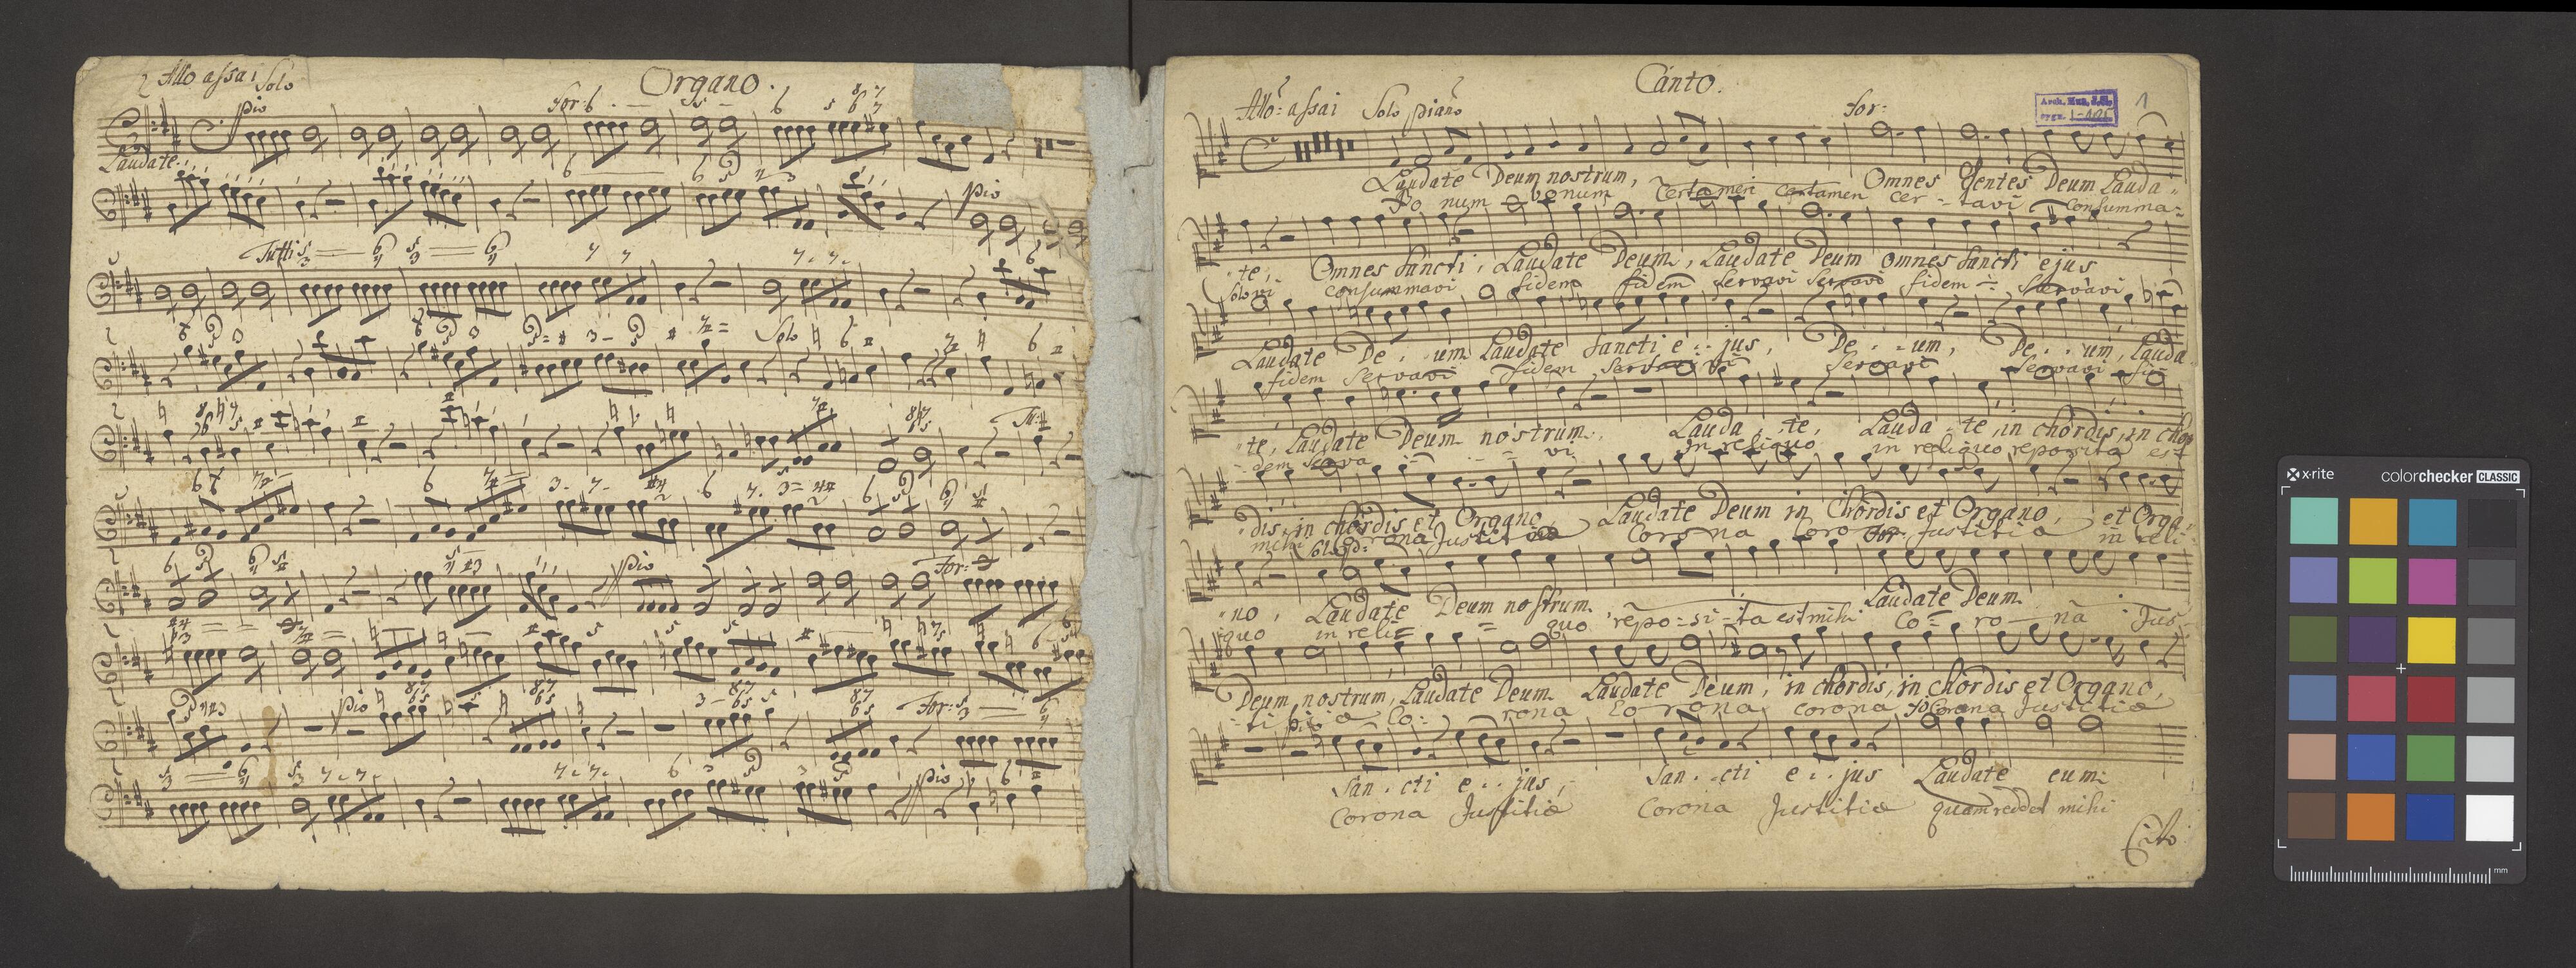 Allo assai Solo
Organo.
pio
for:
Laudate
pio
Tutti
Solo
Tu:
pio
for:
pio
for:
pio
Canto.
Allo: assai Solo piano
for:
1
Laudate Deum nostrum, Omnes Gentes Deum Lauda-
Bonum bonum Certamen Certamen cer-tavi Consumma-
te, Omnes Sancti, Laudate Deum, Laudate Deum omnes Sancti ejus
consummavi fidem fidem Servavi Servavi fidem Servavi
Laudate De..um Laudate Sancti e..jus, De..um, De..um, Lauda
fidem Servavi fidem Servavi Servavi Servavi fi-
te, Laudate Deum nostrum. Lauda..te, Lauda-te, in chordis, in chor
dem Serva - - - vi in reliquo in reliquo reposita est
dis, in chordis et Organo, Laudate Deum in Chordis et Organo, et Orga-
mihi Corona Justitiæ Corona Coro Justitiæ in reli-
Solo
for:
no, Laudate Deum nostrum. Laudate Deum
quo in reli- quo repo-si-ta est mihi Co-ro-na Jus-
Deum nostrum, Laudate Deum Laudate Deum, in chordis, in chordis et Organo,
ti-tiæ Co-rona Corona corona Corona Justitiæ
pio
fo
San.cti e..jus, San..cti e..jus Laudate eum:
Corona Justitiæ Corona Justitiæ quam reddet mihi
Cito
x-rite colorchecker CLASSIC
mm